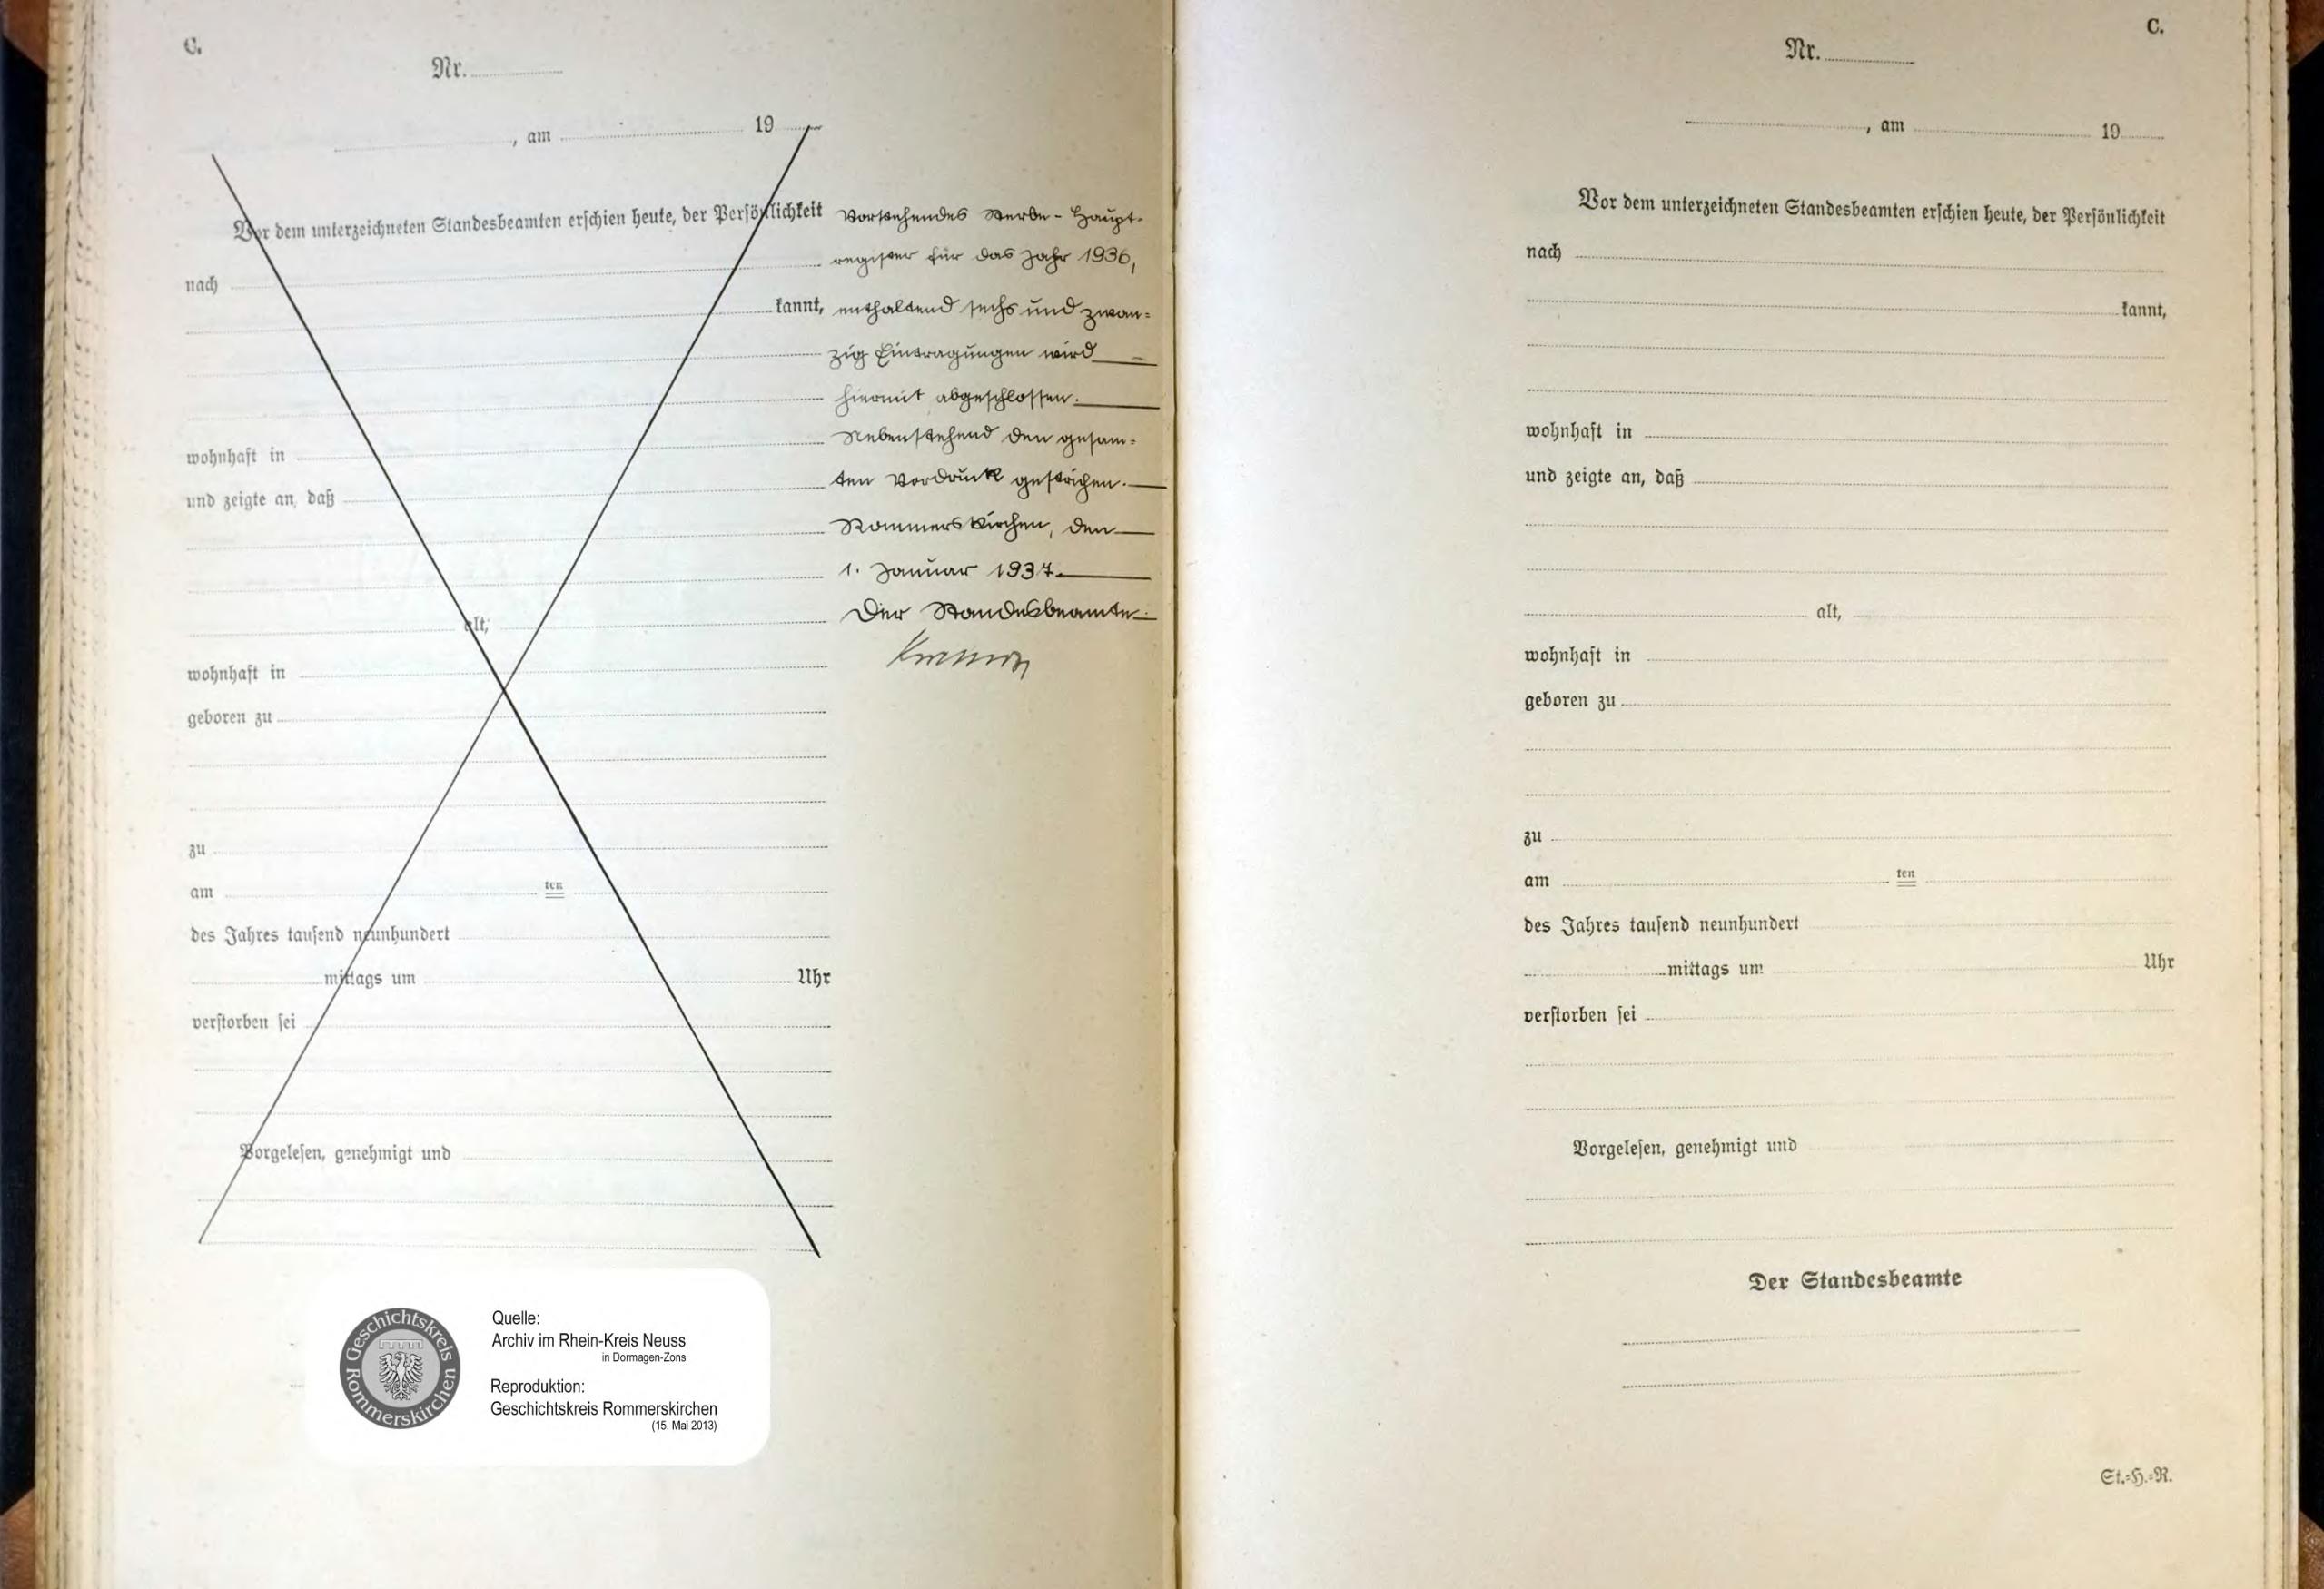 C.
Nr.
, am 19
Vor dem unterzeichneten Standesbeamten erschien heute, der Persönlichkeit
nach
kannt,
wohnhaft in
und zeigte an, daß
alt,
wohnhaft in
geboren zu
zu
am ten
des Jahres tausend neunhundert
mittags um Uhr
verstorben sei
Vorgelesen, genehmigt und
Vorstehendes Sterbe-Haupt-
register für das Jahr 1936,
enthaltend sechs und zwan-
zig Eintragungen wird
hiermit abgeschlossen.
Nebenstehend den gesam-
ten Vordruck gestrichen.
Rommerskirchen, den
1. Januar 1937.
Der Standesbeamte.
Geschichtskreis Rommerskirchen
Quelle:
Archiv im Rhein-Kreis Neuss
in Dormagen-Zons
Reproduktion:
Geschichtskreis Rommerskirchen
(15. Mai 2013)
C.
Nr.
, am 19
Vor dem unterzeichneten Standesbeamten erschien heute, der Persönlichkeit
nach
kannt,
wohnhaft in
und zeigte an, daß
alt,
wohnhaft in
geboren zu
zu
am ten
des Jahres tausend neunhundert
mittags um Uhr
verstorben sei
Vorgelesen, genehmigt und
Der Standesbeamte
St.-H.-R.